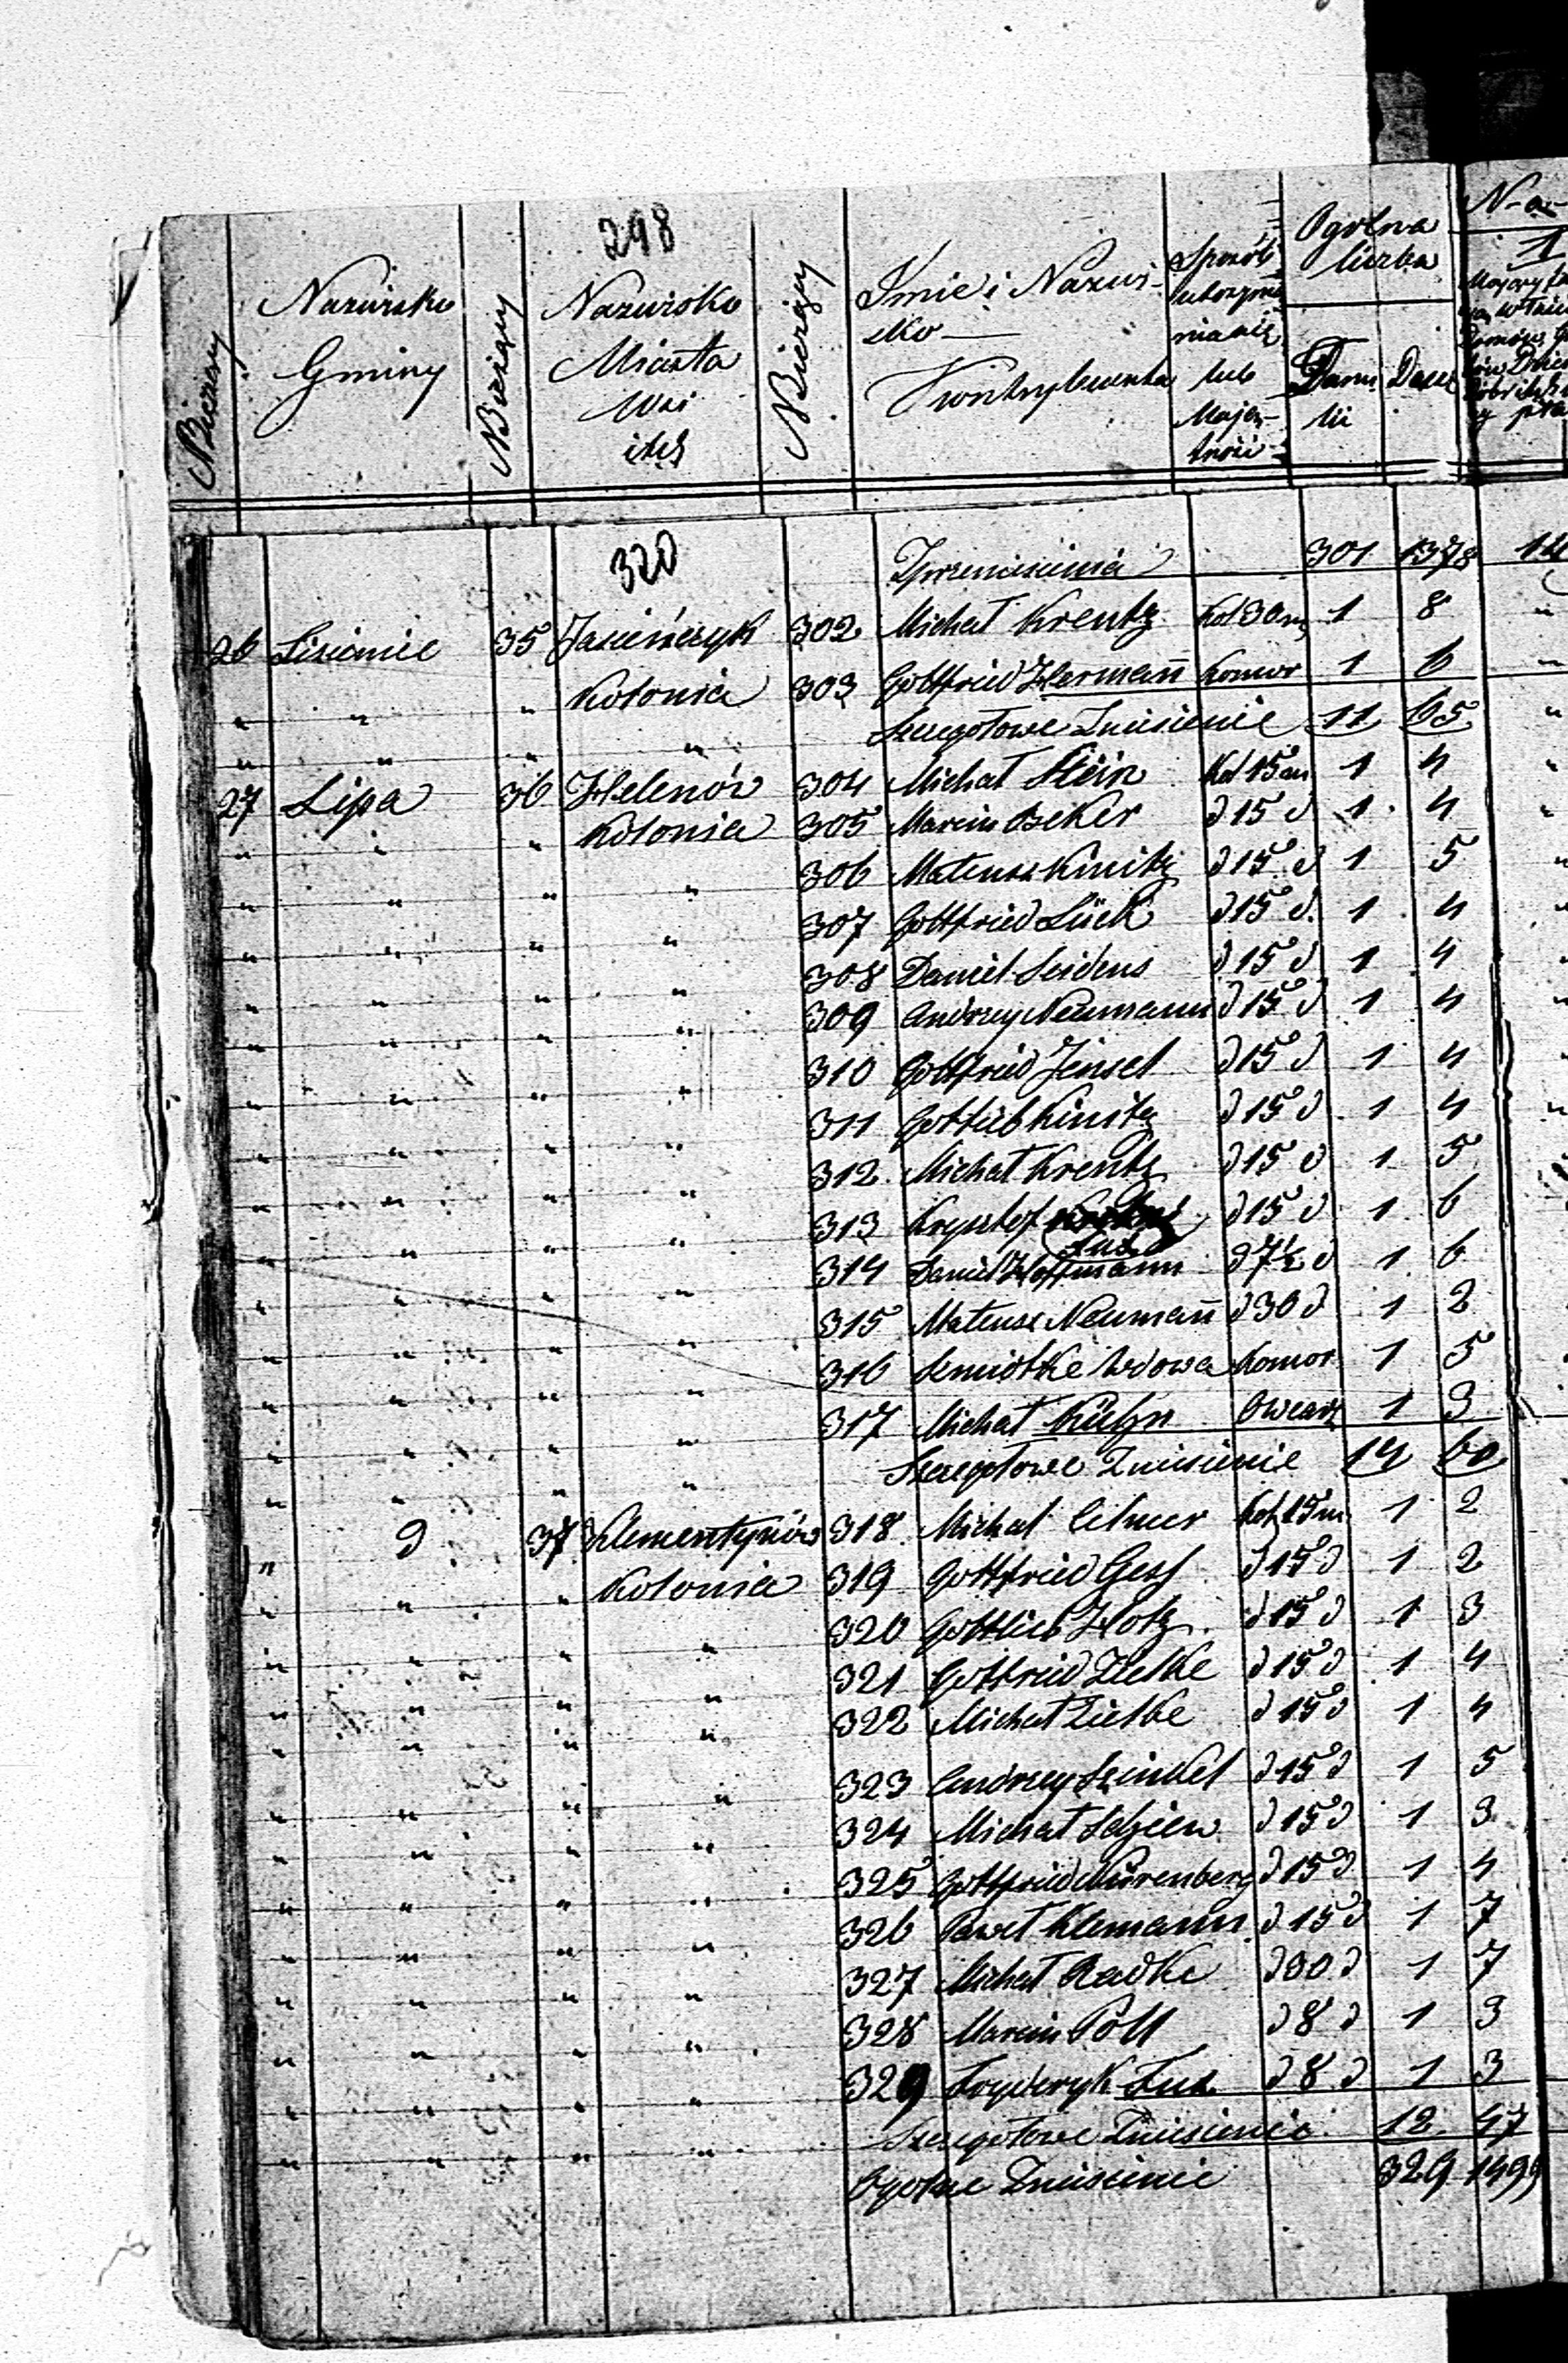 298
N Bieżący
Nazwisko Gminy
N Bieżący
Nazwisko Miasta Wsi itd
N Bieżący
Imie i Nazwisko Kontrybuenta
Sposób utrzymania się lub Majętność
Ogolna liczba
Familii Dusz
N-a-
1
320
Z przeniesienia 301 1378
26 Lisienice 35 Jasieńczyk 302 Michał Krentz Kol 30 m 1 8
" " " Kolonia 303 Gottfried Hermann Komor 1 6
" " " " Szczegółowe Zniesienie 11 65
27 Lipa 36 Helenów 304 Michał Stein Kol 15 m 1 4
" " " Kolonia 305 Marcin Beker d 15 d 1 4
" " " " 306 Mateusz Kinitz d 15 d 1 5
" " " " 307 Gottfried Lück d 15 d 1 4
" " " " 308 Daniel Seidens d 15 d 1 4
" " " " 309 Andrzey Neumann d 15 d 1 4
" " " " 310 Gottfried Jensel d 15 d 1 4
" " " " 311 Gotlieb Kinitz d 15 d 1 4
" " " " 312 Michał Krentz d 15 d 1 5
" " " " 313 Krysztof d 15 d 1 6
" " " " 314 Daniel Hoffmann d 7½ d 1 6
" " " " 315 Mateusz Neumann d 30 d 1 2
" " " " 316 Szmidtke Wdowa Komor 1 5
" " " " 317 Michał Kühn Owcarz 1 3
" " " " Szczegółowe Zniesienie 14 60
" d 37 Klementynów 318 Michał Kol 15 m 1 2
" " " Kolonia 319 Gottfried Gess d 15 d 1 2
" " " " 320 Gottlieb Hotz d 15 d 1 3
" " " " 321 Gottfried Zielke d 15 d 1 4
" " " " 322 Michał Zielke d 15 d 1 4
" " " " 323 Andrzey Szinkel d 15 d 1 5
" " " " 324 Michał d 15 d 1 3
" " " " 325 Gottfried Nürenberg d 15 d 1 4
" " " " 326 Paweł Klemann d 15 d 1 7
" " " " 327 Michał Radke d 30 d 1 7
" " " " 328 Marcin Pöll d 8 d 1 3
" " " " 329 Frydryk Fus d 8 d 1 3
" " " " Szczegółowe Zniesienie 12 47
Ogolne Zniesienie 329 1499